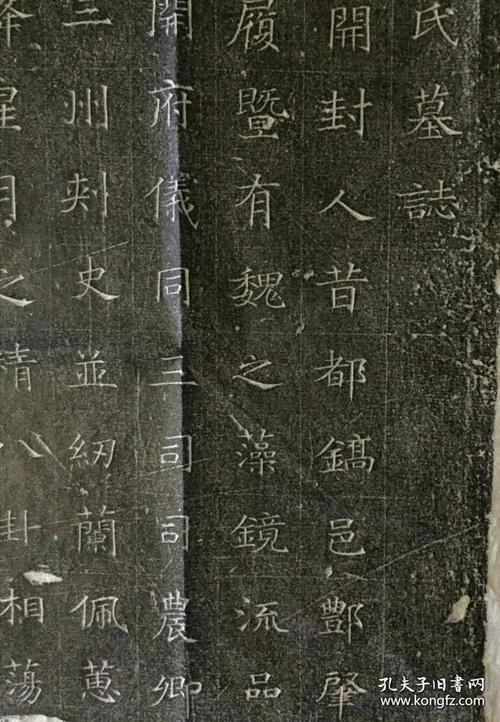 氏墓誌
開封人昔都鎬邑酆肇
履暨有魏之藻鏡流品
開府儀同三司司農卿
三州刾史並紉蘭佩蕙
降星月之精八卦相蕩
孔夫子旧书网
www.kongfz.com